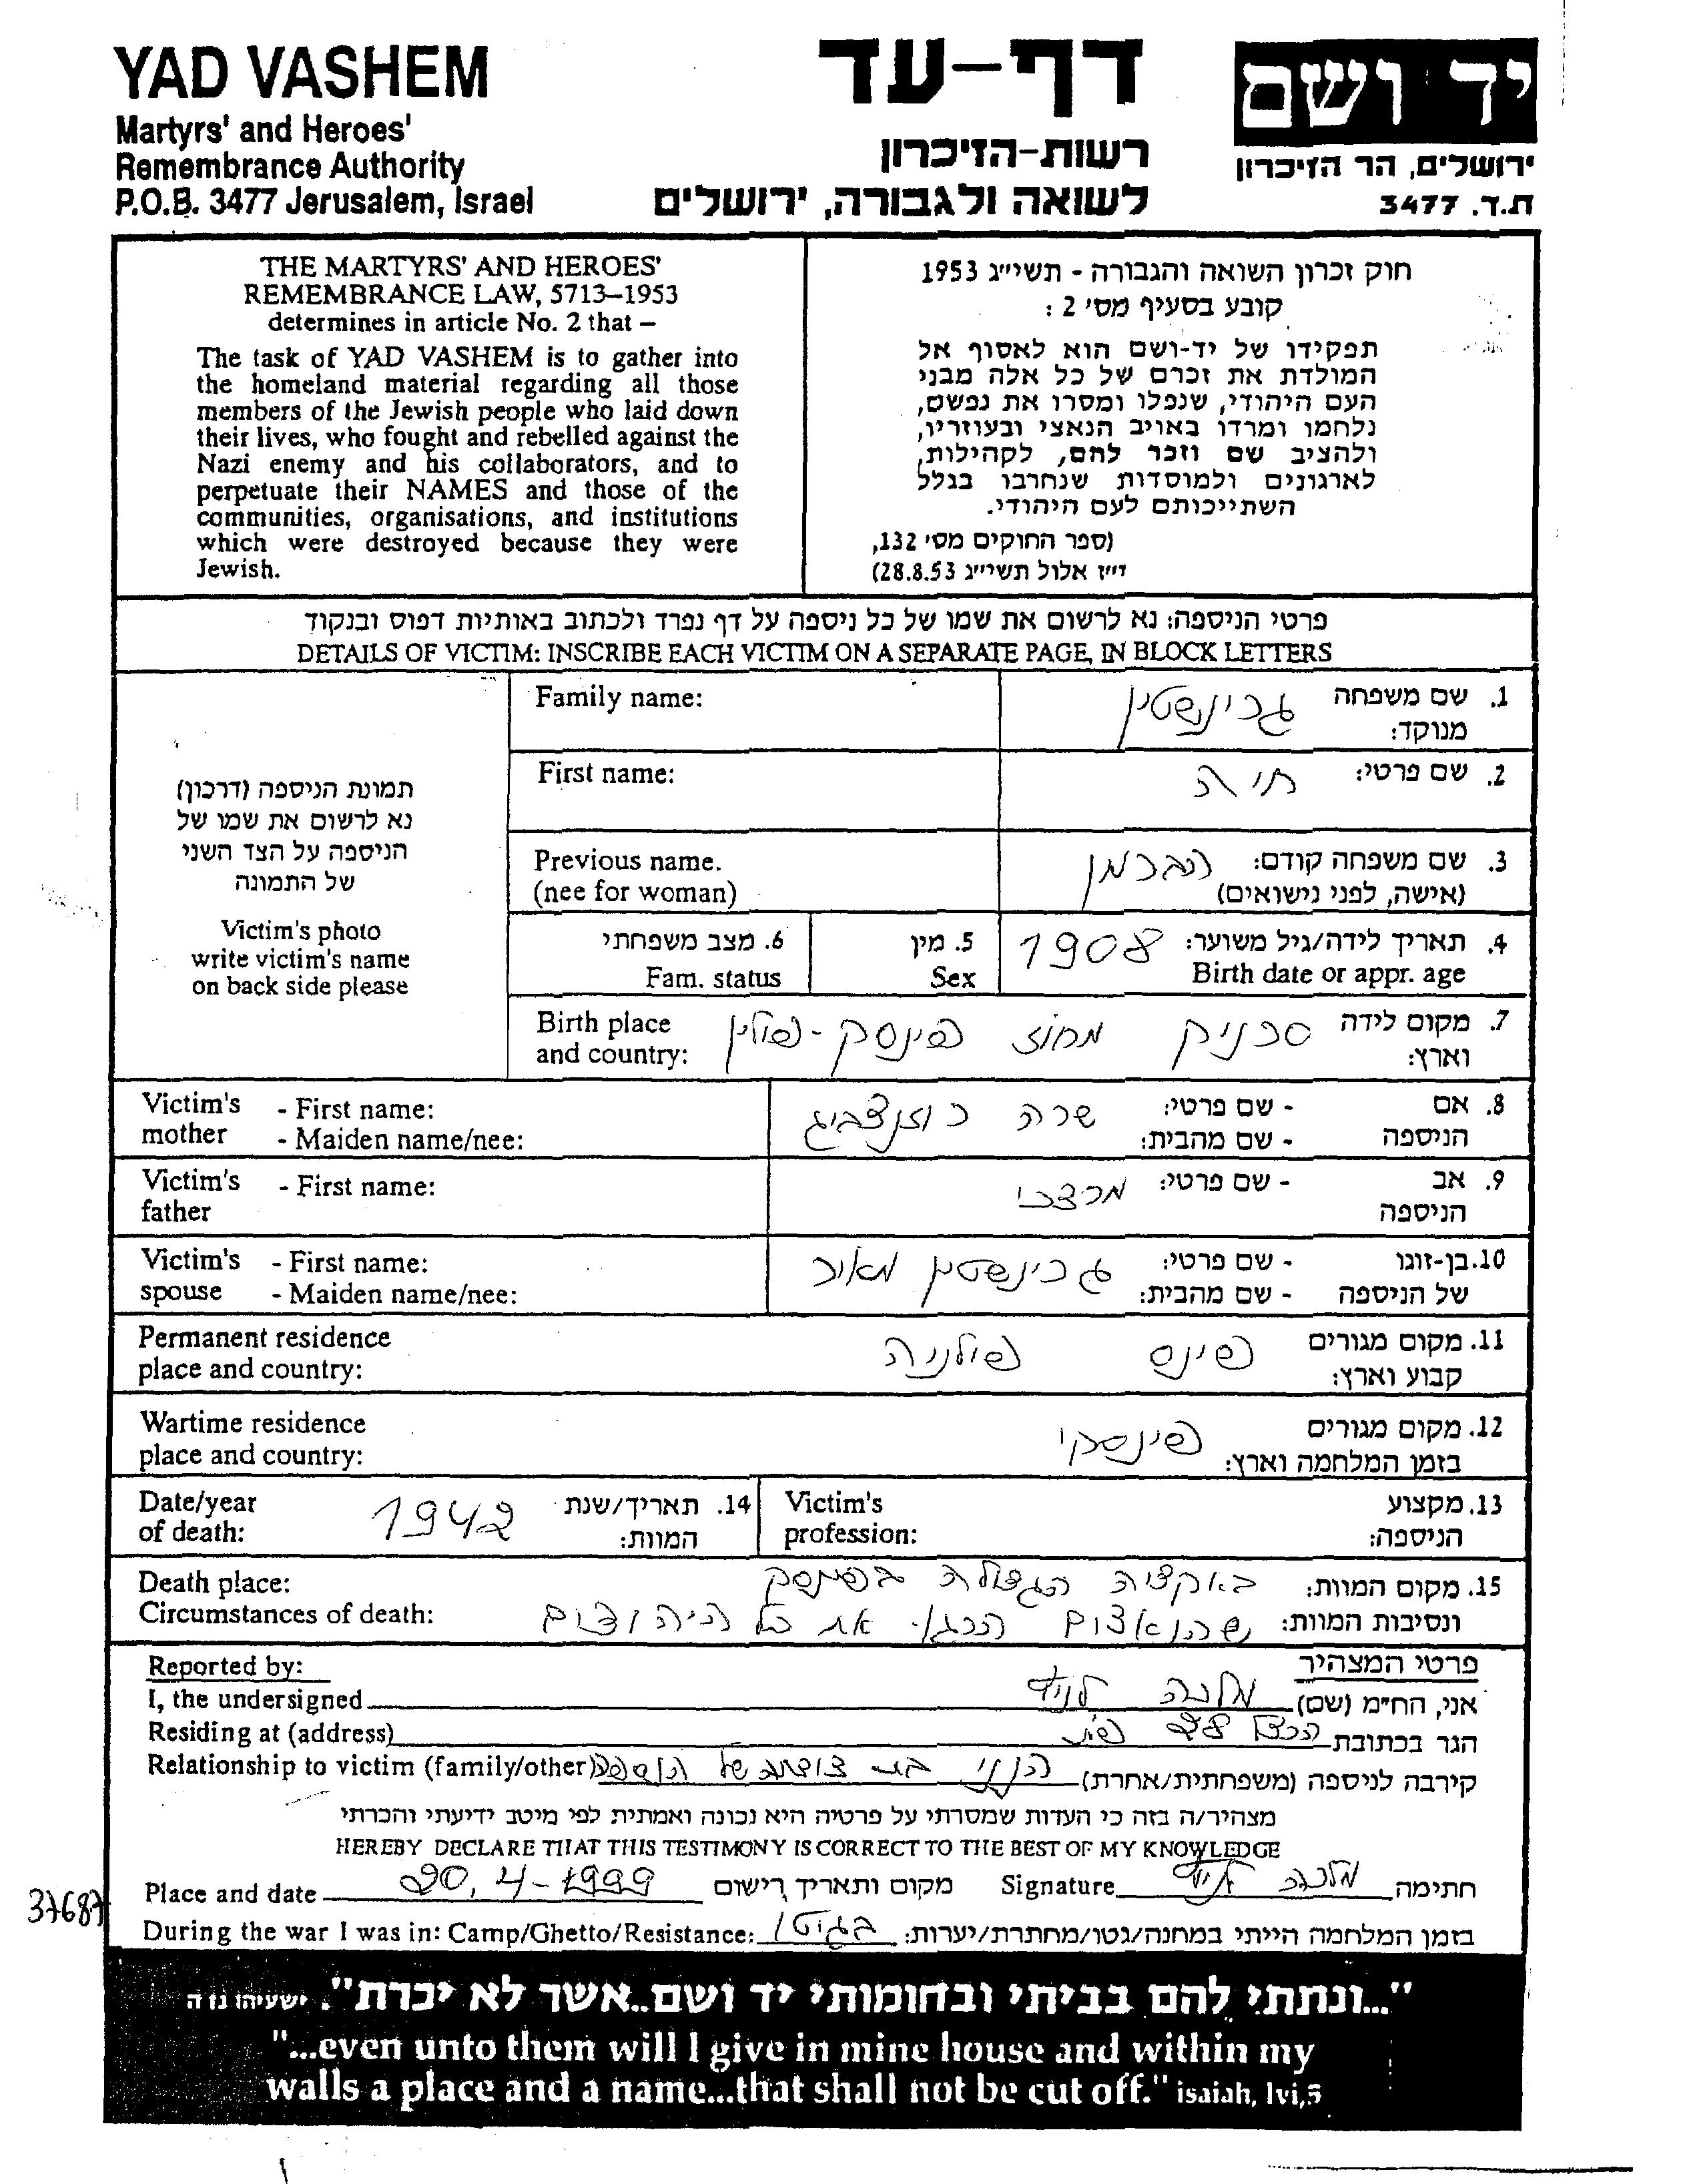 YAD VASHEM
Martyrs' and Heroes'
Remembrance Authority
P.O.B. 3477 Jerusalem, Israel
דף-עד
רשות-הזיכרון
לשואה ולגבורה, ירושלים
יד ושם
ירושלים, הר הזיכרון
ת.ד. 3477
THE MARTYRS' AND HEROES'
REMEMBRANCE LAW, 5713–1953
determines in article No. 2 that –
The task of YAD VASHEM is to gather into
the homeland material regarding all those
members of the Jewish people who laid down
their lives, who fought and rebelled against the
Nazi enemy and his collaborators, and to
perpetuate their NAMES and those of the
communities, organisations, and institutions
which were destroyed because they were
Jewish.
חוק זכרון השואה והגבורה - תשי״ג 1953
קובע בסעיף מס׳ 2 :
תפקידו של יד-ושם הוא לאסוף אל
המולדת את זכרם של כל אלה מבני
העם היהודי, שנפלו ומסרו את נפשם,
נלחמו ומרדו באויב הנאצי ובעוזריו,
ולהציב שם וזכר להם, לקהילות,
לארגונים ולמוסדות שנחרבו בגלל
השתייכותם לעם היהודי.
(ספר החוקים מס׳ 132,
י״ז אלול תשי״ג 28.8.53)
פרטי הניספה: נא לרשום את שמו של כל ניספה על דף נפרד ולכתוב באותיות דפוס ובנקוד
DETAILS OF VICTIM: INSCRIBE EACH VICTIM ON A SEPARATE PAGE, IN BLOCK LETTERS
תמונת הניספה (דרכון)
נא לרשום את שמו של
הניספה על הצד השני
של התמונה
Victim's photo
write victim's name
on back side please
1. שם משפחה
מנוקד: גרינשטין
Family name:
2. שם פרטי: חיה
First name:
3. שם משפחה קודם: הברמן
(אישה, לפני נישואים)
Previous name.
(nee for woman)
4. תאריך לידה/גיל משוער: 1908
Birth date or appr. age
5. מין
Sex
6. מצב משפחתי
Fam. status
7. מקום לידה
וארץ: סרניק מחוז פינסק-פולין
Birth place
and country:
8. אם - שם פרטי: שרה
הניספה - שם מהבית:
Victim's - First name:
mother - Maiden name/nee:
9. אב - שם פרטי: מרדכי
הניספה
Victim's - First name:
father
10. בן-זוגו - שם פרטי: גרינשטין מאיר
של הניספה - שם מהבית:
Victim's - First name:
spouse - Maiden name/nee:
11. מקום מגורים
קבוע וארץ: פינס פולניה
Permanent residence
place and country:
12. מקום מגורים
בזמן המלחמה וארץ: פינסק
Wartime residence
place and country:
13. מקצוע
הניספה:
Victim's
profession:
14. תאריך/שנת
המוות: 1942
Date/year
of death:
15. מקום המוות: באקציה הגדולה בפינסק
ונסיבות המוות: שהנאצים הרגו את כל היהודים
Death place:
Circumstances of death:
פרטי המצהיר
Reported by:
אני, הח״מ (שם) מלכה
I, the undersigned
הגר בכתובת הרצל 28
Residing at (address)
קירבה לניספה (משפחתית/אחרת) הנני בת דודתה של הנספה
Relationship to victim (family/other)
מצהיר/ה בזה כי העדות שמסרתי על פרטיה היא נכונה ואמתית לפי מיטב ידיעתי והכרתי
HEREBY DECLARE THAT THIS TESTIMONY IS CORRECT TO THE BEST OF MY KNOWLEDGE
Place and date 20.4-1999 מקום ותאריך רישום Signature מלכה חתימה
37687
During the war I was in: Camp/Ghetto/Resistance: בגיטו בזמן המלחמה הייתי במחנה/גטו/מחתרת/יערות:
"...ונתתי להם בביתי ובחומותי יד ושם..אשר לא יכרת". ישעיהו נו ה
"...even unto them will I give in mine house and within my
walls a place and a name...that shall not be cut off." isaiah, lvi,5